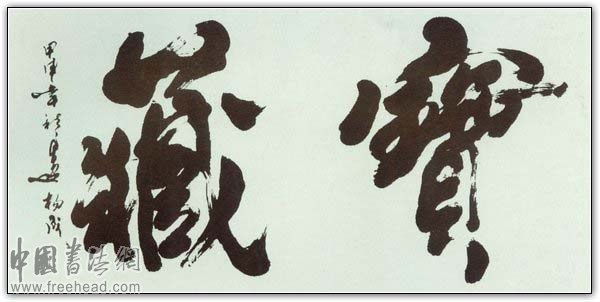 寶藏
甲申
中國書法網
www.freehead.com